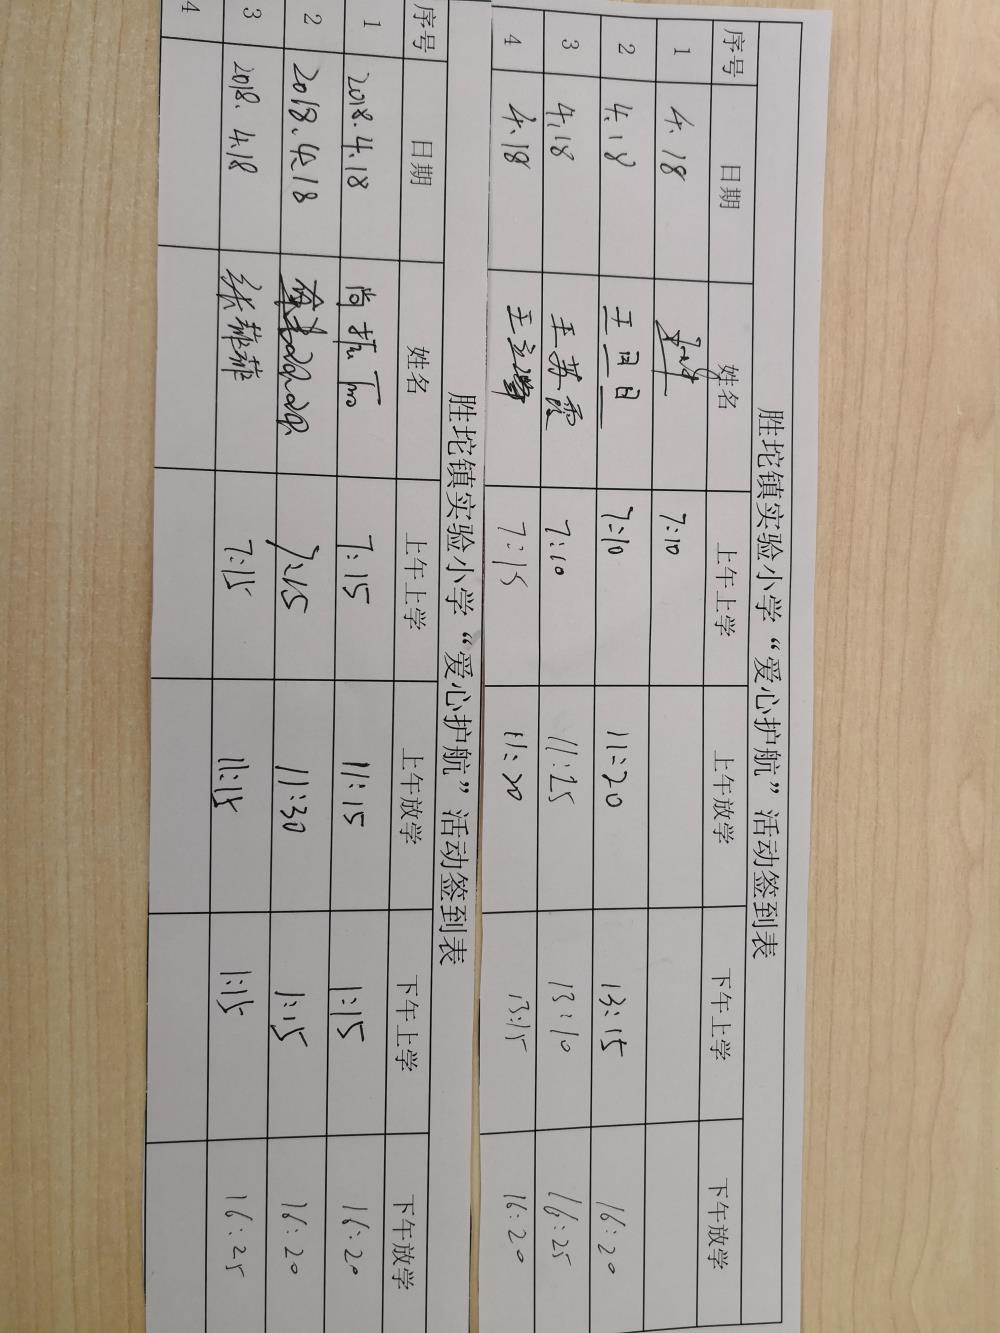 胜坨镇实验小学“爱心护航”活动签到表
序号 日期 姓名 上午上学 上午放学 下午上学 下午放学
1 4.18 7:10
2 4.18 王 7:10 11:20 13:15 16:20
3 4.18 王苏霞 7:10 11:25 13:10 16:25
4 4.18 王 7:15 11:20 13:15 16:20
胜坨镇实验小学“爱心护航”活动签到表
序号 日期 姓名 上午上学 上午放学 下午上学 下午放学
1 2018.4.18 尚 7:15 11:15 1:15 16:20
2 2018.4.18 7:15 11:30 1:15 16:20
3 2018.4.18 张菲菲 7:15 11:15 1:15 16:25
4